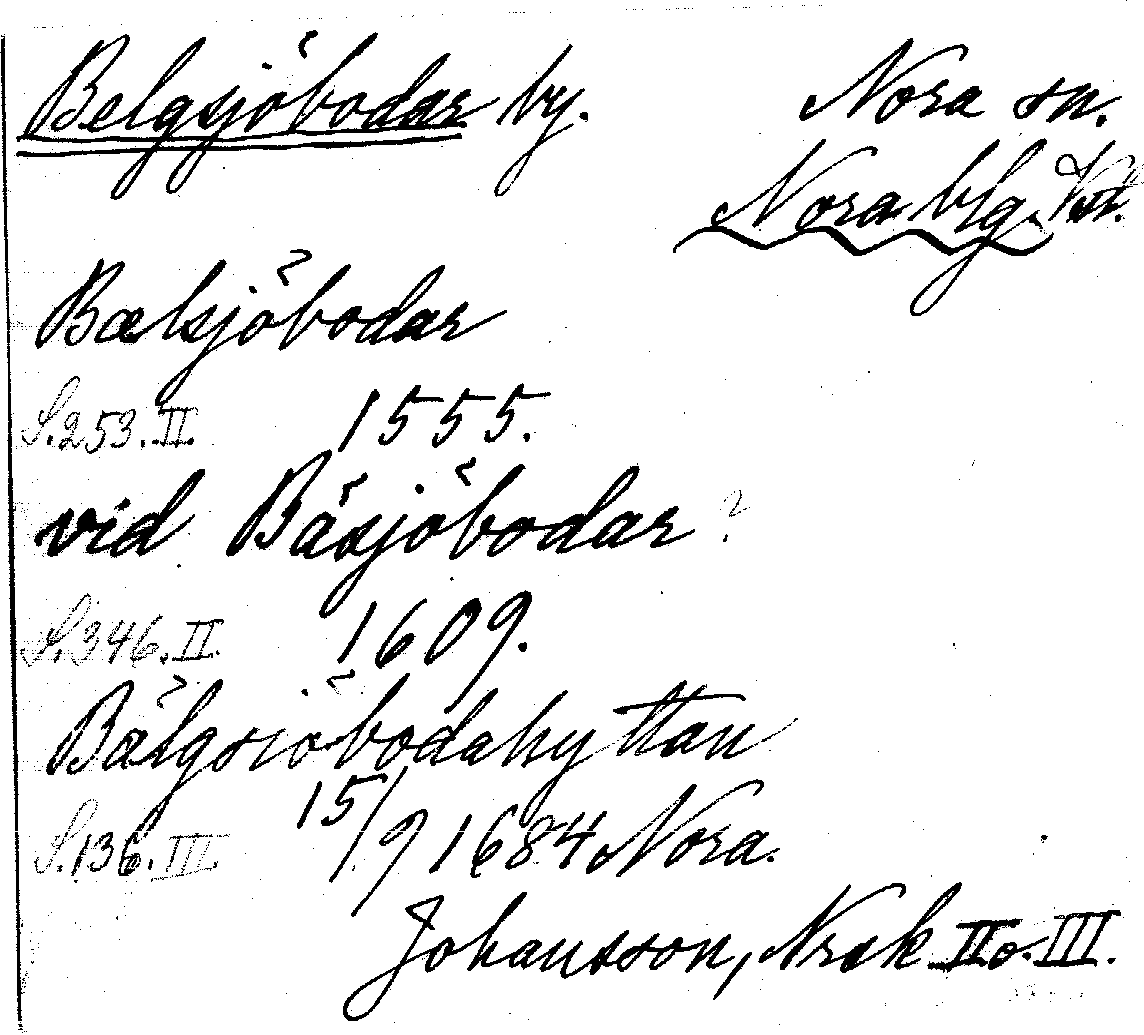 Belgsjöbodar by. Nora sn.
Nora blg. Vstl.
Bælsjöbodar
S.253.II. 1555.
vid Bäsjöbodar?
S.346.II. 1609.
Bälgsiöbodahyttan
S.136.III. 15/9 1684 Nora.
Johansson, Nrsk II o. III.